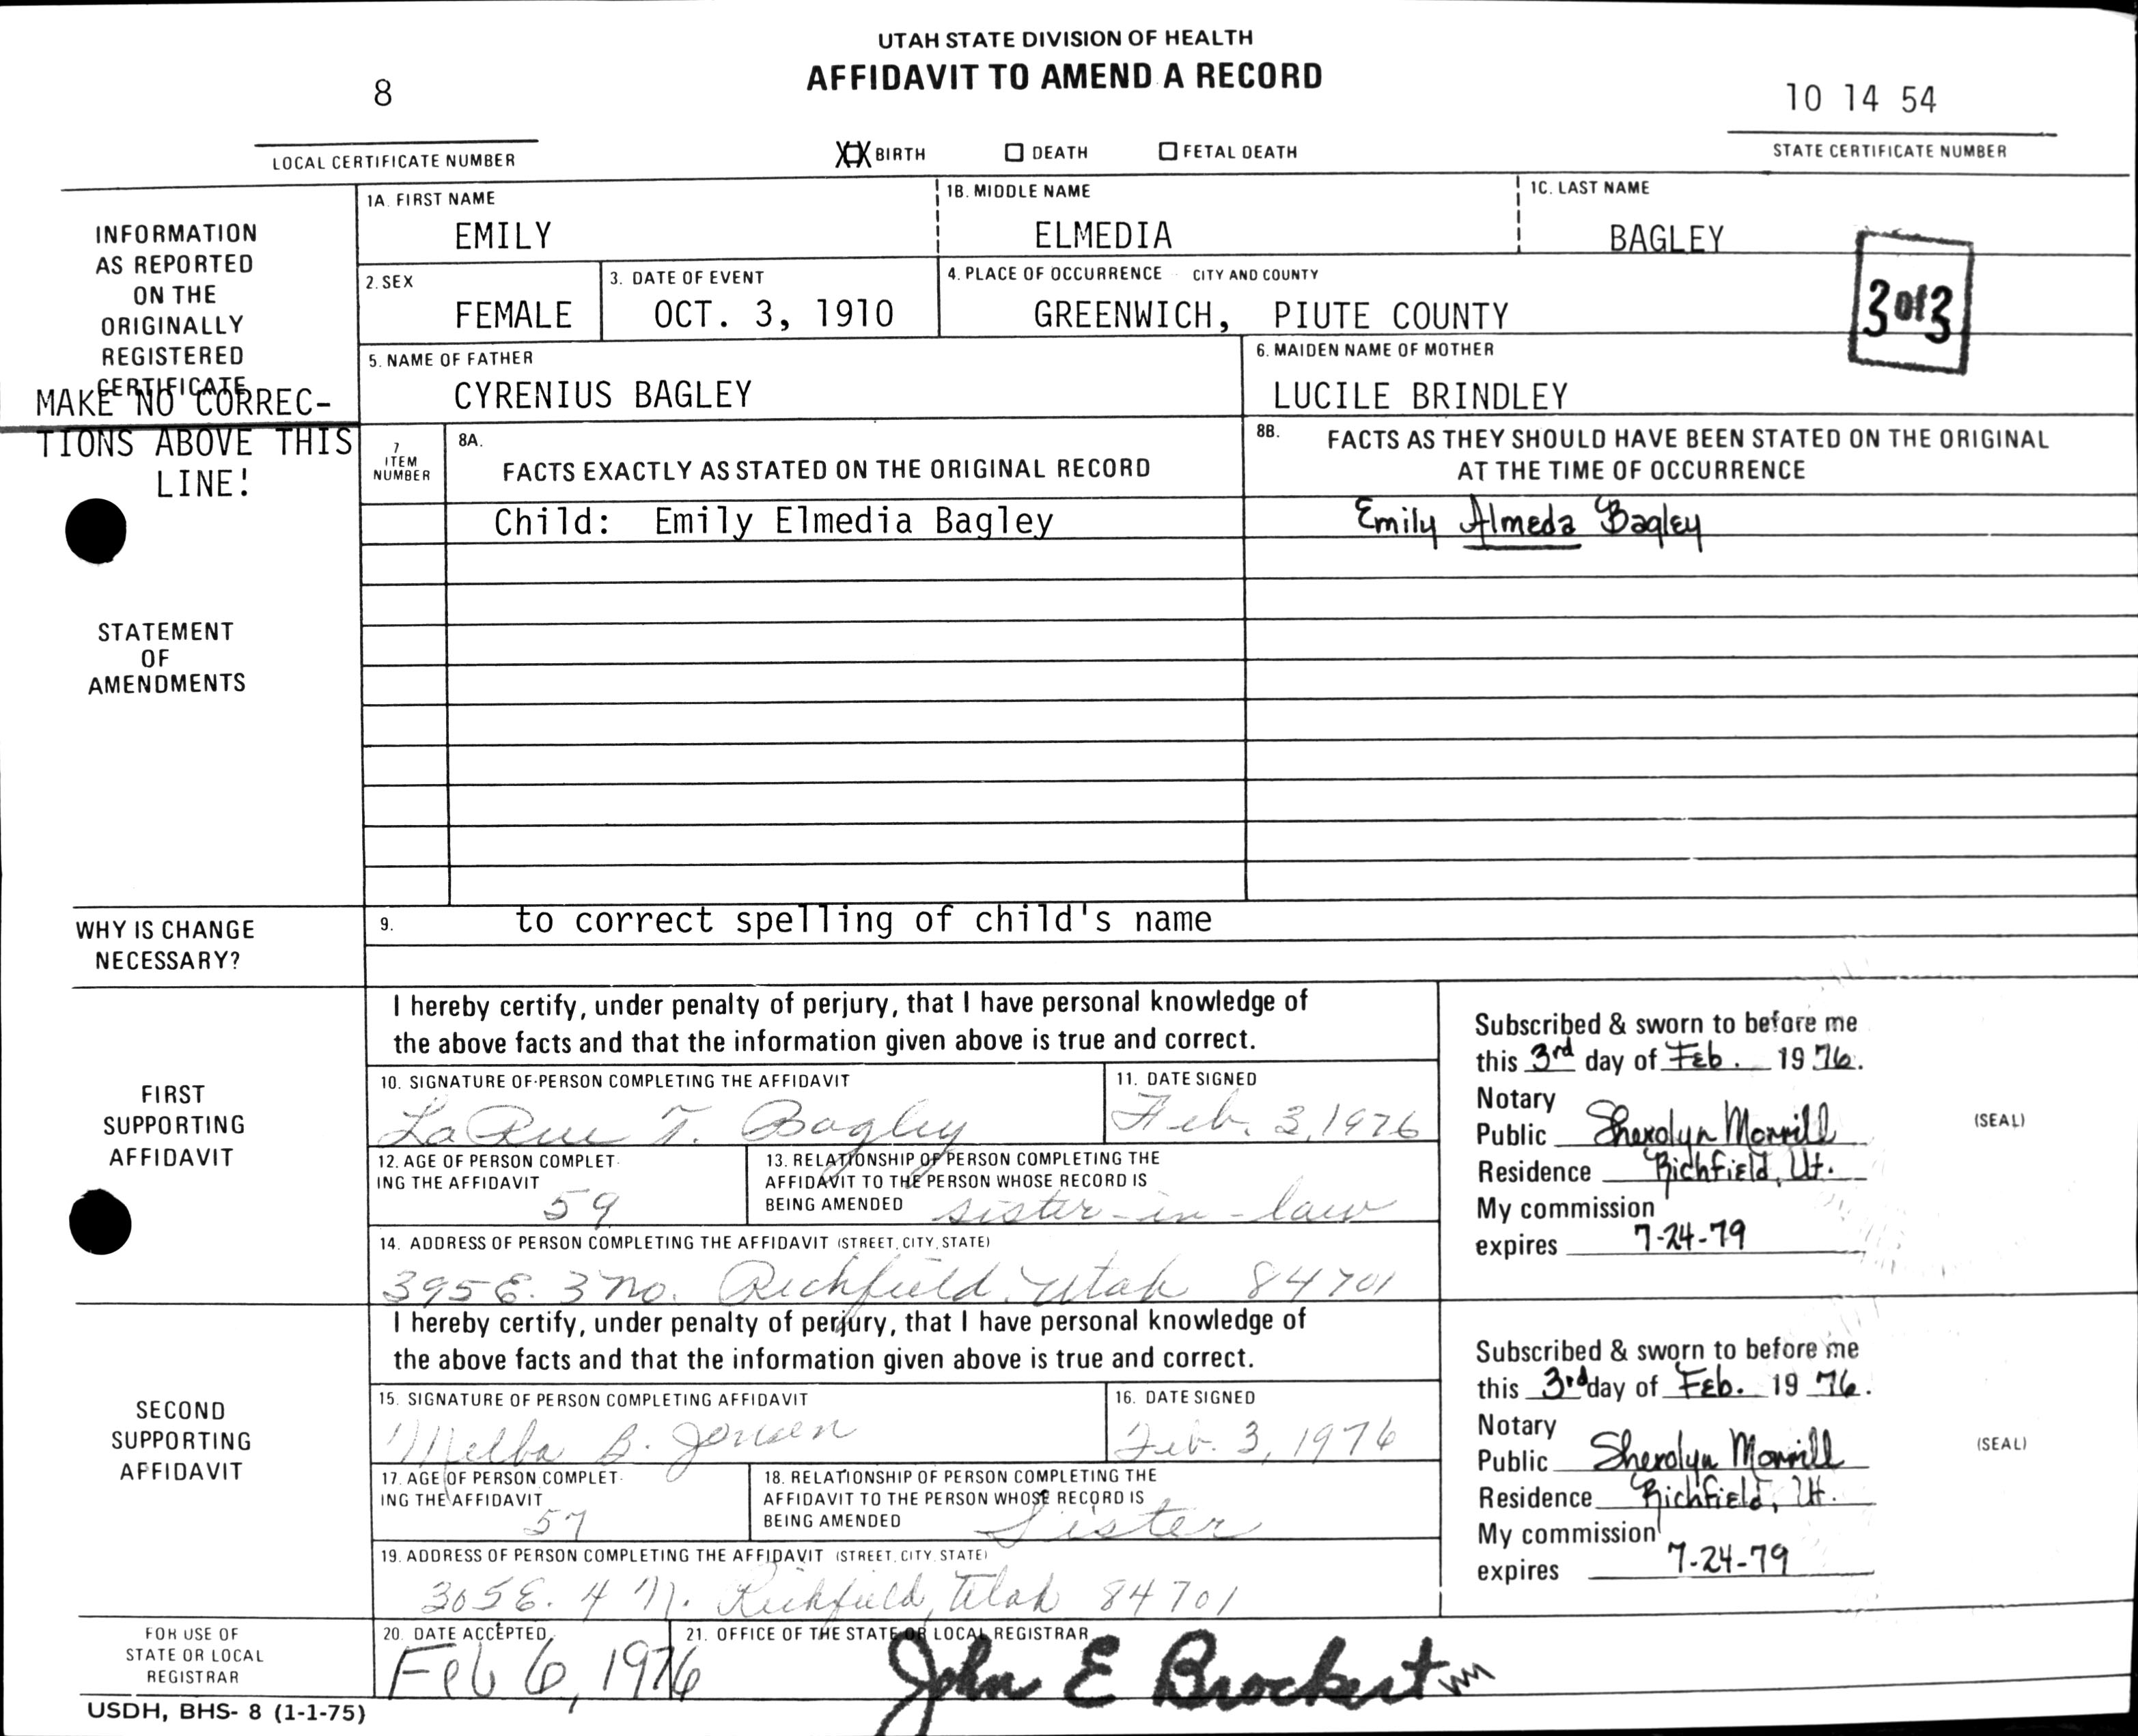 UTAH STATE DIVISION OF HEALTH
AFFIDAVIT TO AMEND A RECORD
8
LOCAL CERTIFICATE NUMBER
XX BIRTH
DEATH
FETAL DEATH
10 14 54
STATE CERTIFICATE NUMBER
INFORMATION
AS REPORTED
ON THE
ORIGINALLY
REGISTERED
CERTIFICATE
1A. FIRST NAME
EMILY
1B. MIDDLE NAME
ELMEDIA
1C. LAST NAME
BAGLEY
2. SEX
FEMALE
3. DATE OF EVENT
OCT. 3, 1910
4. PLACE OF OCCURRENCE CITY AND COUNTY
GREENWICH, PIUTE COUNTY
3 of 3
5. NAME OF FATHER
CYRENIUS BAGLEY
6. MAIDEN NAME OF MOTHER
LUCILE BRINDLEY
MAKE NO CORREC-
TIONS ABOVE THIS
LINE!
7
ITEM
NUMBER
8A.
FACTS EXACTLY AS STATED ON THE ORIGINAL RECORD
8B. FACTS AS THEY SHOULD HAVE BEEN STATED ON THE ORIGINAL
AT THE TIME OF OCCURRENCE
Child: Emily Elmedia Bagley
Emily Almeda Bagley
STATEMENT
OF
AMENDMENTS
WHY IS CHANGE
NECESSARY?
9. to correct spelling of child's name
FIRST
SUPPORTING
AFFIDAVIT
I hereby certify, under penalty of perjury, that I have personal knowledge of
the above facts and that the information given above is true and correct.
10. SIGNATURE OF PERSON COMPLETING THE AFFIDAVIT
LaRue T. Bagley
11. DATE SIGNED
Feb. 3, 1976
12. AGE OF PERSON COMPLET-
ING THE AFFIDAVIT
59
13. RELATIONSHIP OF PERSON COMPLETING THE
AFFIDAVIT TO THE PERSON WHOSE RECORD IS
BEING AMENDED sister-in-law
14. ADDRESS OF PERSON COMPLETING THE AFFIDAVIT (STREET, CITY, STATE)
395 E. 3 No. Richfield, Utah 84701
Subscribed & sworn to before me
this 3rd day of Feb. 1976.
Notary
Public Sherolyn Morrill
(SEAL)
Residence Richfield, Ut.
My commission
expires 7-24-79
SECOND
SUPPORTING
AFFIDAVIT
I hereby certify, under penalty of perjury, that I have personal knowledge of
the above facts and that the information given above is true and correct.
15. SIGNATURE OF PERSON COMPLETING AFFIDAVIT
Melba B. Jensen
16. DATE SIGNED
Feb. 3, 1976
17. AGE OF PERSON COMPLET-
ING THE AFFIDAVIT
57
18. RELATIONSHIP OF PERSON COMPLETING THE
AFFIDAVIT TO THE PERSON WHOSE RECORD IS
BEING AMENDED Sister
19. ADDRESS OF PERSON COMPLETING THE AFFIDAVIT (STREET, CITY, STATE)
305 E. 4 N. Richfield, Utah 84701
Subscribed & sworn to before me
this 3rd day of Feb. 1976.
Notary
Public Sherolyn Morrill
(SEAL)
Residence Richfield, Ut.
My commission
expires 7-24-79
FOR USE OF
STATE OR LOCAL
REGISTRAR
20. DATE ACCEPTED
Feb 6, 1976
21. OFFICE OF THE STATE OR LOCAL REGISTRAR
John E Brockert
USDH, BHS- 8 (1-1-75)